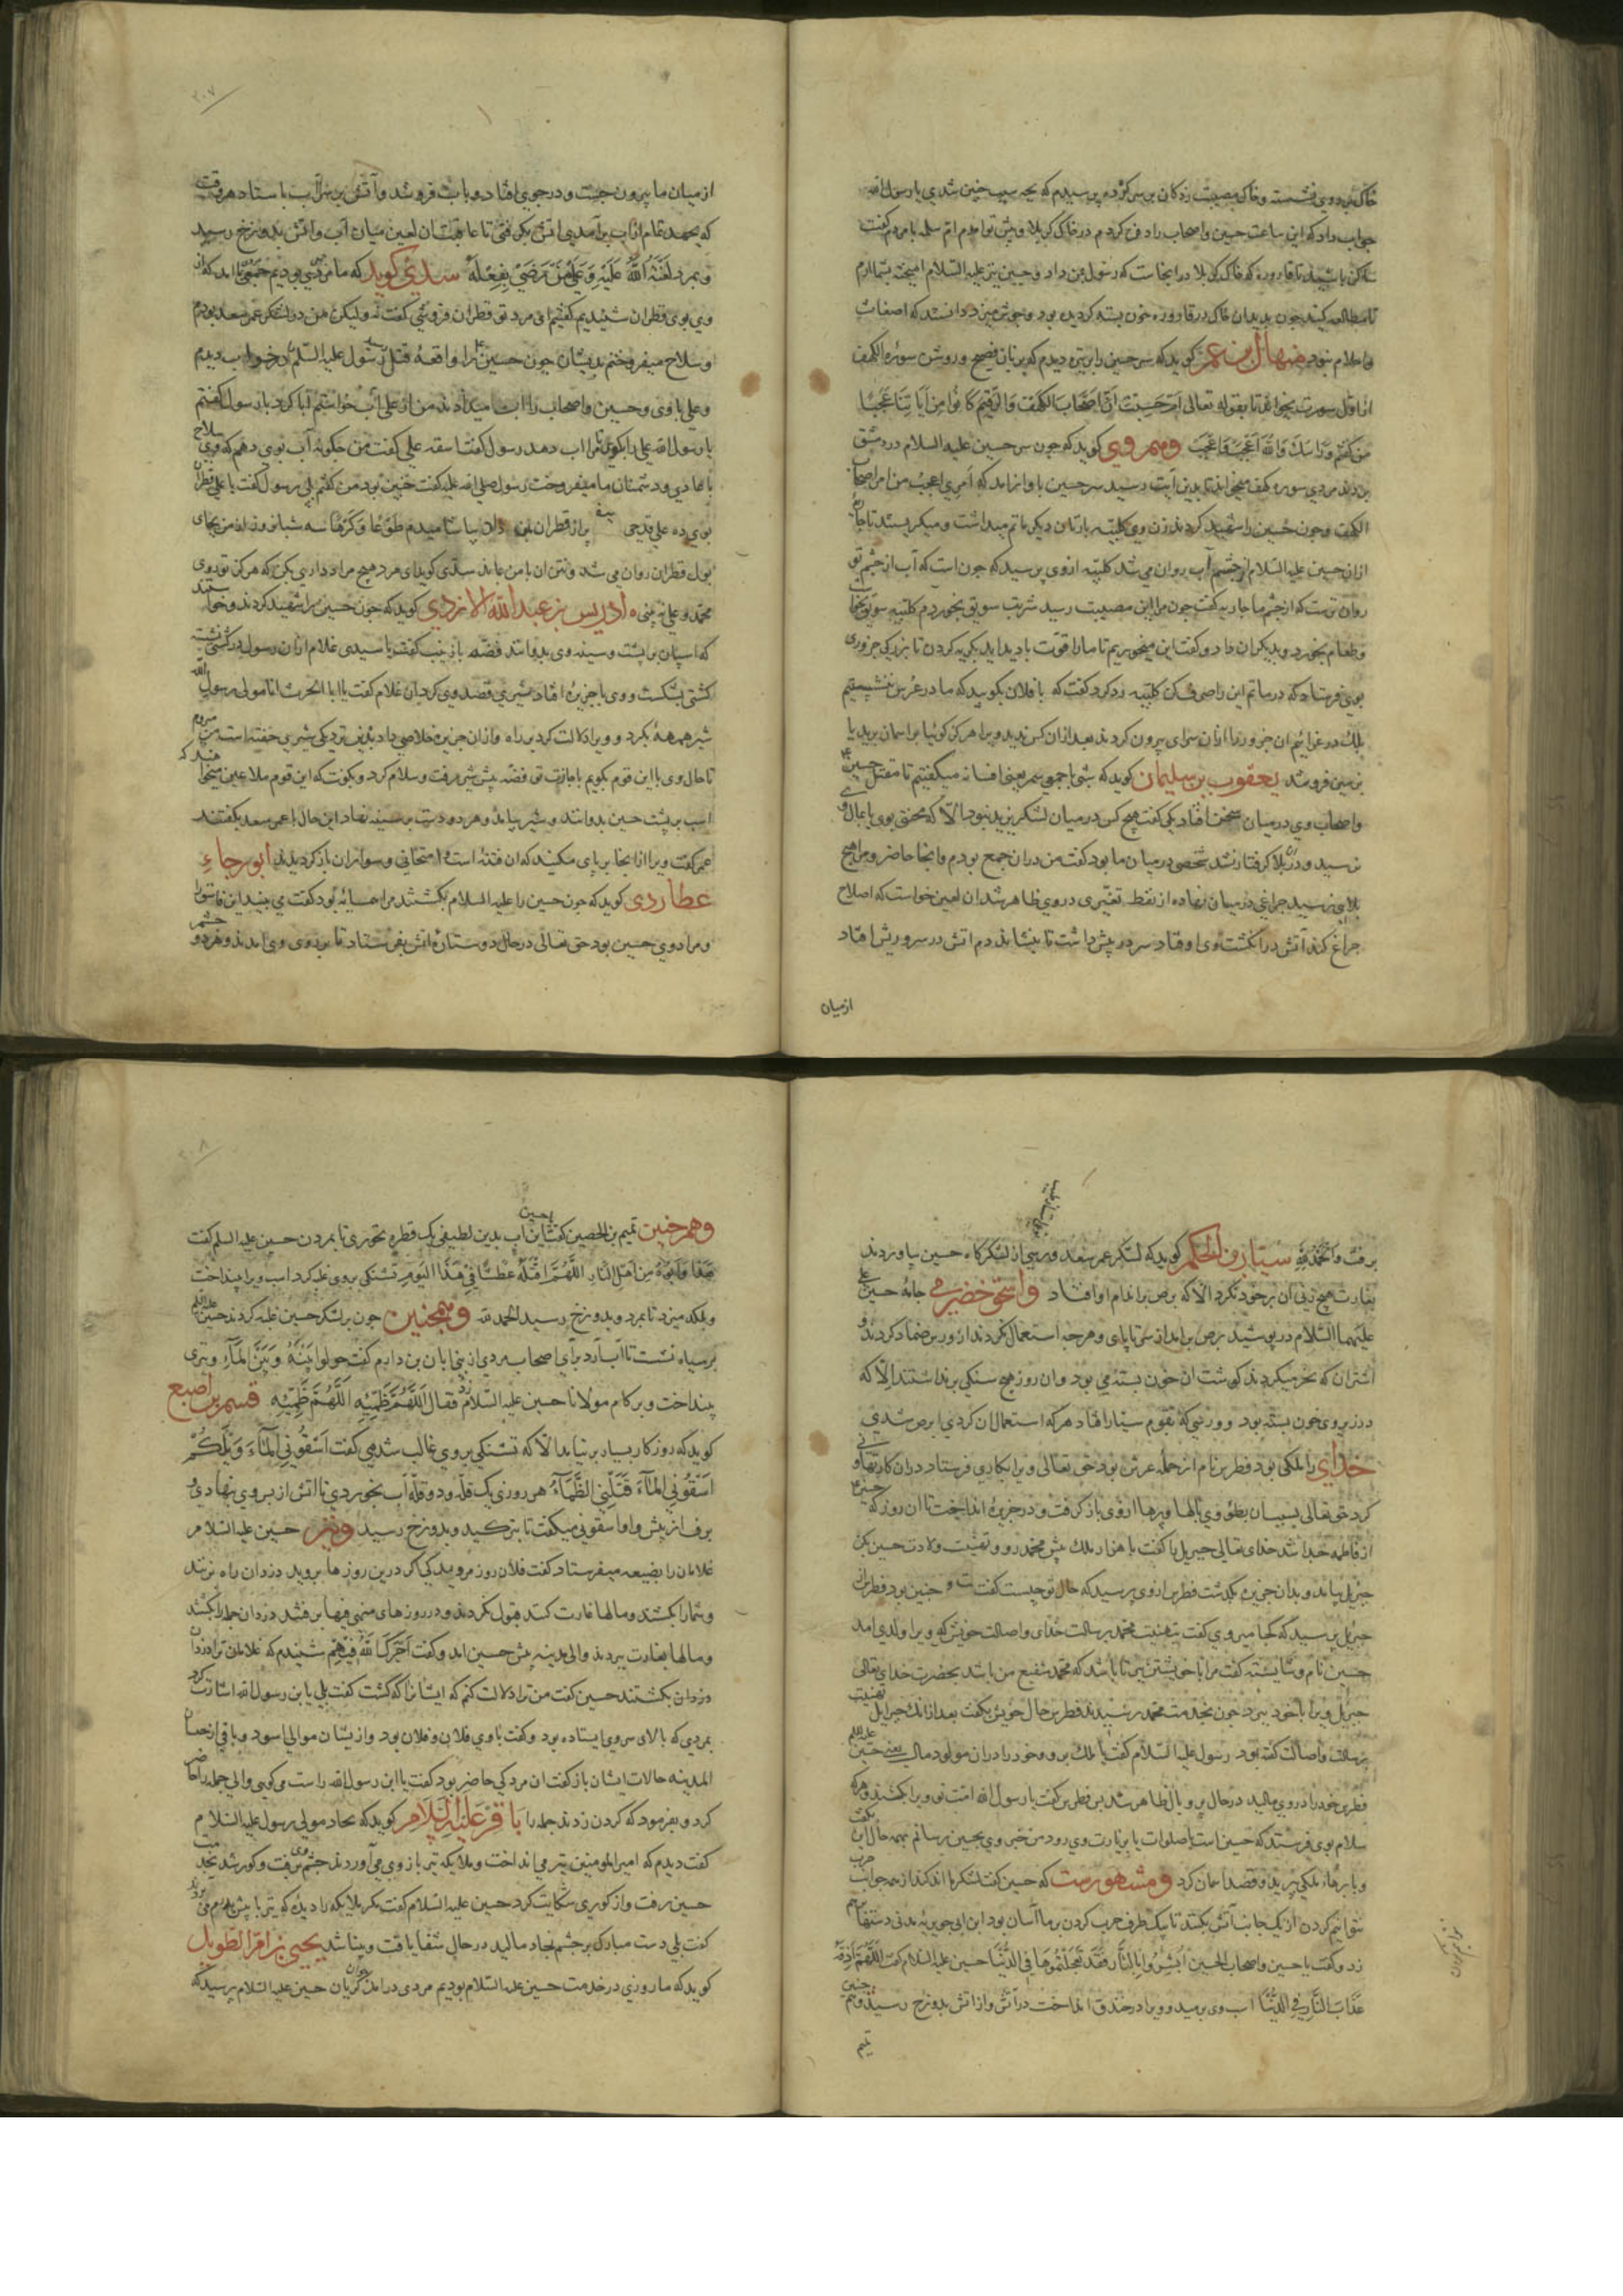 خاک بر روی نشسته و خاک مصیبت زدکان بر سر کرده پرسیدم که بچه سبب چنین شدی یا رسول الله
جواب داد که این ساعت حسین و اصحاب را دفن کردم در خاک کربلا و پیش تو آمدم ام سلمه با مردم گفت
ساکن باشید تا قاروره که خاک کربلا در انجاست که رسول بمن داد و حسین نیز علیه السلام امیخته بشما ارم
تا مطالعه کنید چون بدیدند ان خاک در قاروره خون بسته کردیده بود و جوش میزد دانستند که اضغاث
و احلام نبود منهال بن عمر کوید که سر حسین را بر نیزه دیدم که بزبان فصیح و روشن سوره الکهف
از اول سورت میخواند تا بقوله تعالی ام حسبت ان اصحاب الکهف والرقیم کانوا من ایاتنا عجبا
من کفتم و راسک والله اعجب فاعجب و هم روی کوید که چون سر حسین علیه السلام در دمشق
بردند مردی سوره کهف میخواند تا بدین آیت رسید سر حسین باواز امد که امری اعجب من امر اصحاب
الکهف و چون حسین را شهید کردند زن وی کلبیه با زنان دیکر ماتم میداشت و میکریستند تا جاریه
ازان حسین علیه السلام از چشم آب روان می شد کلبیه ازوی پرسید که چون است که آب از چشم تو
روان ترست که از چشم ما جاریه کفت چون مرا این مصیبت رسید شربت سویق بخوردم کلبیه سویق بخواست
و طعام بخورد و بدیکران داد و کفت این میخوریم تا مارا قوت بادید اید بکریه کردن تا بزرکی جزوری
بوی فرستاد که در ماتم این را صرف کن کلبیه رد کرد کفت که با فلان بکویید که ما در عرس ننشسته ایم
بلک در عزائیم ان جزور را ازان سرای بیرون کردند بعد ازان کس ندید ویرا هرکز کوئیا بر اسمان پرید یا
بزمین فرو شد یعقوب بن سلیمان کوید که شبی با جمعی سمر یعنی افسانه میکفتیم تا مقتل حسین
و اصحاب وی در میان سخن افتاد یکی کفت هیچ کس در میان لشکر یزید نبود الا که محنتی بوی یا بمال وی
نرسید و در بلا کرفتار نشد شخصی در میان ما بود کفت من دران جمع بودم و انجا حاضر و مرا هیچ
بلایی نرسید چراغی در میان نهاده از نفط تغیری در وی ظاهر شد ان لعین خواست که اصلاح
چراغ کند آتش در انکشت وی اوفتاد سر در پیش داشت تا بنشاند دم اتش در سر و ریش افتاد
ازمیان
۲۰۷
از میان ما بیرون جست و در جوی افتاد و باب فرو شد و آتش بر سر آب باستاد هر وقت
که بجهد تمام از آب بر آمدی اتش بکرفتی تا عاقبت ان لعین میان آب و اتش بدوزخ رسید
و بمرد لعنة الله علیه و علی من رضی بفعله سدی کوید که ما مردمی بودیم جمعی با امد که از
وی بوی قطران شنیدیم کفتیم ای مرد تو قطران فروشی کفت نه ولیکن من در لشکر عمر سعد بودم
و سلاح میفروختم بدیشان چون حسین را واقعه قتل رسید رسول علیه السلم در خواب دیدم
و علی با وی و حسین و اصحاب را اب میدادند من از علی آب خواستم ابا کرد با رسول کفتم
یا رسول الله علی را بکوی تا مرا اب دهد رسول کفت اسقه علی کفت من چکونه آب بوی دهم که وی سلاح
با عادی و دشمنان ما میفروخت رسول صلی الله علیه کفت چنین بود من کفتم بلی رسول کفت یا علی قطران
بوی ده علی قدحی پر از قطران بمن داد بیاشامیدم طوعا و کرها سه شبانروز از من بجای
بول قطران روان می شد و نتن ان با من بماند سدی کوید ای مرد هیچ مراد داری بکن که هرکز تو روی
محمد و علی نه بینی ادریس بن عبدالله الازدی کوید که چون حسین را شهید کردند و خواستند
که اسپان بر پشت و سینه وی بدوانند فضه با زینب کفت یا سیدی غلام ازان رسول در کشتی نشست
کشتی بشکست و وی با جزیره افتاد شیری قصد وی کرد ان غلام کفت یا ابا الحرث انا مولی رسول الله
شیر همهمه بکرد و ویرا دلالت کرد بر راه و ازان جزیره خلاصی داد بدین نزدیکی شیری خفته است من میروم
تا حال وی با این قوم بکویم باجازت تو فضه پیش شیر رفت و سلام کرد و بکفت که این قوم ملاعین میخواهند که
اسب بر پشت حسین بدوانند و شیر بیامد و هر دو دست بر سینه نهاد این حال با عمر سعد بکفتند
عمر کفت ویرا از انجا بر پای مکنید که ان فتنه است و امتحانی و سواران باز کردیدند ابو رجاء
عطاردی کوید که چون حسین را علیه السلام بکشتند مرا همسایه بود کفت می بینید این فاسق را
و مرادوی حسین بود حق تعالی در حال دو ستاره اتش بفرستاد تا بر روی وی امدند و هر دو چشم
برفت والحمد لله سیار بن الحکم کوید که لشکر عمر سعد ورسی از لشکرکاه حسین بیاوردند
بغارت هیچ زنی ان بر خود نکرد الا که برص بر اندام او افتاد و اسحق خضرمی جامه حسین
علیهما السلام در پوشید برص بر اند از سر تا پای و هرچه استعمال نکردند ازورس رماد کردید و
اشتران که نحر میکردند کوشت ان خون بسته می بود و ان روز هیچ سنکی برنداشتند الا که
در زیر وی خون بسته بود و ورسی که بقوم سیار افتاد هرکه استعمال ان کردی ابرص شدی
خدای را ملکی بود فطرس نام از حمله عرش بود حق تعالی ویرا بکاری فرستاد دران کار تهاونی
کرد حق تعالی بسبب ان بطؤ وی بالها و پرها از وی باز کرفت و در جزیره انداخت تا ان روز که حسین
از فاطمه جدا شد خدای تعالی جبریل را کفت با هزار ملک پیش محمد رو و تهنیت ولادت حسین بکن
جبریل بیامد و بدان جزیره بکذشت فطرس ازوی پرسید که حال تو چیست کفت چنین بود فطرس از
جبریل پرسید که کجا میروی کفت بتهنیت محمد برسالت خدای و اصالت خویش که ویرا ولدی امد
حسین نام و شایسته کفت مرا با خویشتن ببر تا باشد که محمد شفیع من باشد بحضرت خدای تعالی
جبریل ویرا با خود ببرد چون بخدمت محمد رسیدند فطرس حال خویش بکفت بعد ازانک جبرایل تهنیت
برسالت و اصالت کفته بود رسول علیه السلام کفت یا ملک برو و خود را دران مولود مال یعنی حسین علیه السلم
فطرس خود را در وی مالید در حال پر و بال ظاهر شد بس فطرس کفت یا رسول الله امت تو ویرا بکشند و هرکه
سلام بوی فرستد که حسین است یا صلوات یا بزیارت وی رود من خبر وی بحسین رسانم همه حال این بکفت
و با پرهاء ملکی پرید و قصد اسمان کرد و مشهورست که حسین کفت لشکر ما اندکند از همه جوانب حرب
نتوانیم کردن از یک جانب آتش بکنند تا یک طرف حرب کردن بر ما آسان بود ابن ابی جویریه مدنی دستها برهم
زد و کفت یا حسین و اصحاب الحسین ابشروا بالنار فقد تعجلتموها فی الدنیا حسین علیه السلام کفت اللهم اذقه
عذاب النار فی الدنیا اسب وی برمید و ویرا در خندق انداخت در آتش و از اتش بدوزخ رسید و هم چنین
تمیم
۲۰۸
و هم چنین تمیم بن الحصین کفت یا حسین این اب بدین لطیفی یک قطره نخوری تا بمردن حسین علیه السلم کفت
هذا و ابوه من اهل النار اللهم اقتله عطشا فی هذا الیوم تشنکی بروی غلبه کرد اسب ویرا بینداخت
و بلکد میزد تا بمرد و بدوزخ رسید الحمد لله و همچنین چون بر لشکر حسین غلبه کردند حسین علیه السلم
بر سیاه نشست تا آب آرد برای اصحاب مردی از بنی ابان بن دارم کفت حولوا بینه و بین الماء و تیری
بینداخت و بر کام مولانا حسین علیه السلام زد فقال اللهم ظمئه اللهم ظمئه قسم بن اصبغ
کوید که روزکار بسیار برنیامد الا که تشنکی بروی غالب شد می کفت اسقونی الماء ویلکم
اسقونی الماء قتلنی الظماء هر روزی یک قله و دو قله آب بخوردی تا اتش از بر وی نهادی و
برف از پیش و اوا سقونی میکفت تا بترکید و بدوزخ رسید و نیز حسین علیه السلام
غلامان را بضیعه میفرستاد کفت فلان روز مروید کی اکر درین روزها بروید دزدان راه بزنند
و شما را بکشند و مالها غارت کنند قبول نکردند و در روزهای منهی فیها برفتند دزدان جمله را بکشتند
و مالها بغارت ببردند والی مدینه پیش حسین امد و کفت آجرک الله فیهم شنیدم که غلامان ترا دزدان
دزدان بکشتند حسین کفت من ترا دلالت کنم که ایشانرا که کشت کفت بلی یا بن رسول الله اشارت کرد
بمردی که بالای سر وی ایستاده بود و کفت با وی فلان و فلان بود و ازیشان موالی اسود و باقی از حبشان
المدینه حالات ایشان باز کفت ان مرد کی حاضر بود کفت یا ابن رسول الله راست می کویی والی جمله را حاضر
کرد و بفرمود که کردن زدند جمله را باقر علیه السلام کوید که نجاد مولی رسول علیه السلام
کفت دیدم که امیرالمومنین تیر می انداخت و ملایکه تیر باز وی می آوردند چشم وی برفت و کور شد بخدمت
حسین رفت و از کوری شکایت کرد حسین علیه السلام کفت مکر ملایکه را دیده که تیر با پیش پدرم می آوردند
کفت بلی دست مبارک بر چشم نجاد مالید در حال شفا یافت و بینا شد یحیی بن ام الطویل
کوید که ما روزی در خدمت حسین علیه السلام بودیم مردی جوان در امد کریان حسین علیه السلام پرسید که